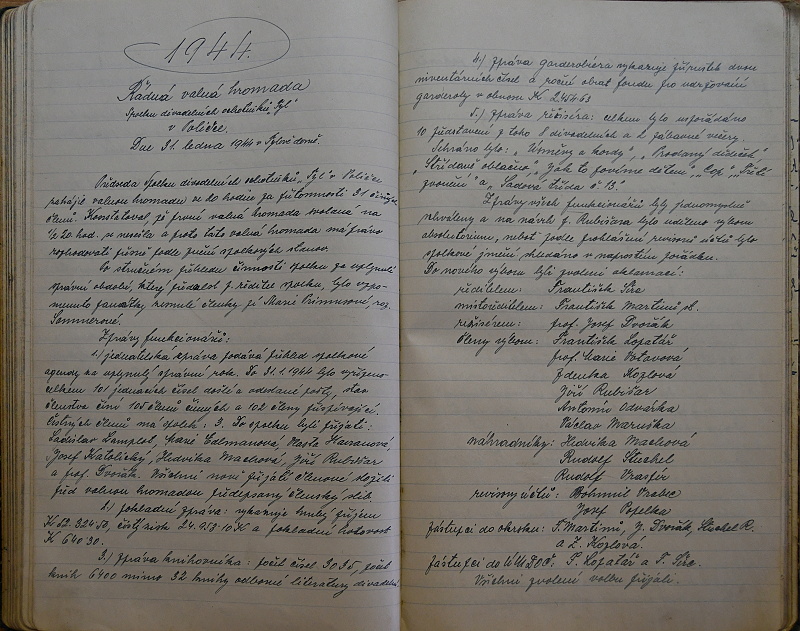 1944.
Řádná valná hromada
Spolku divadelních ochotníků „Tyl"
v Poličce.
Dne 31. ledna 1944 v Tylově domě.
Předseda spolku divadelních ochotníků „Tyl" v Poličce
zahájil valnou hromadu ve 20 hodin za přítomnosti 31 činných
členů. Konstatoval, že první valná hromada svolaná na
1/2 20. hod. se nesešla a proto tato valná hromada má právo
rozhodovati přesně podle znění spolkových stanov.
Po stručném přehledu činnosti spolku za uplynulé
správní období, který podal p. ředitel spolku, bylo vzpo-
menuto památky zemřelé členky pí Marie Primusové roz.
Sommerové.
Zprávy funkcionářů:
1.) jednatelská zpráva podává přehled spolkové
agendy za uplynulý správní rok. Do 31.1.1944 bylo vyřízeno
celkem 101 jednacích čísel došlé a odeslané pošty, stav
členstva činí 105 členů činných a 102 členy přispívající.
Čestných členů má spolek: 3. Do spolku byli přijati:
Ladislav Lamplot, Marie Edlmanová, Vlasta
Josef Katolický, Hedvika Machová, Jiří Rubišar
a prof. Dvořák. Všichni noví přijatí členové složili
před valnou hromadou předepsaný členský slib.
2.) pokladní zpráva: vykazuje hrubý příjem
K 62.324.50, čistý zisk 24.953.10 K a pokladní hotovost
K 640 30.
3.) zpráva knihovníka: počet čísel 3035, počet
knih 6400 mimo 32 knihy odborné literatury divadelní.
4.) zpráva garderobiéra vykazuje přírůstek dvou
inventárních čísel a roční obrat fondu pro udržování
garderoby v obnosu K 2.454.63
5.) zpráva režiséra: celkem bylo uspořádáno
10 představení z toho 8 divadelních a 2 zábavné večery.
Sehráno bylo: „Úsměvy a kordy", „Prodaný dědeček",
„Střídavě oblačno", „Jak to povíme dětem", „Čap", „Třetí
zvonění" a „Sadová třída č. 13."
Zprávy všech funkcionářů byly jednomyslně
schváleny a na návrh p. Rubišara bylo uděleno výboru
absolutorium, neboť podle prohlášení revisorů účtů bylo
spolkové jmění shledáno v naprostém pořádku.
Do nového výboru byli zvoleni aklamací:
ředitelem: František Síre
místoředitelem: František Martinů st.
režisérem: prof. Josef Dvořák
členy výboru: František Lopatář
prof. Marie Votavová
Zdenka Kozlová
Jiří Rubišar
Antonín Odvárka
Václav Maruška
náhradníky: Hedvika Machová
Rudolf Stuchel
Rudolf
revisory účtů: Bohumil Vrabec
Josef Popelka
zástupci do okrsku: F. Martinů, J. Dvořák, Stuchel R.
a Z. Kozlová.
zástupci do ÚMDOČ: F. Lopatář a F. Síre.
Všichni zvolení volbu přijali.